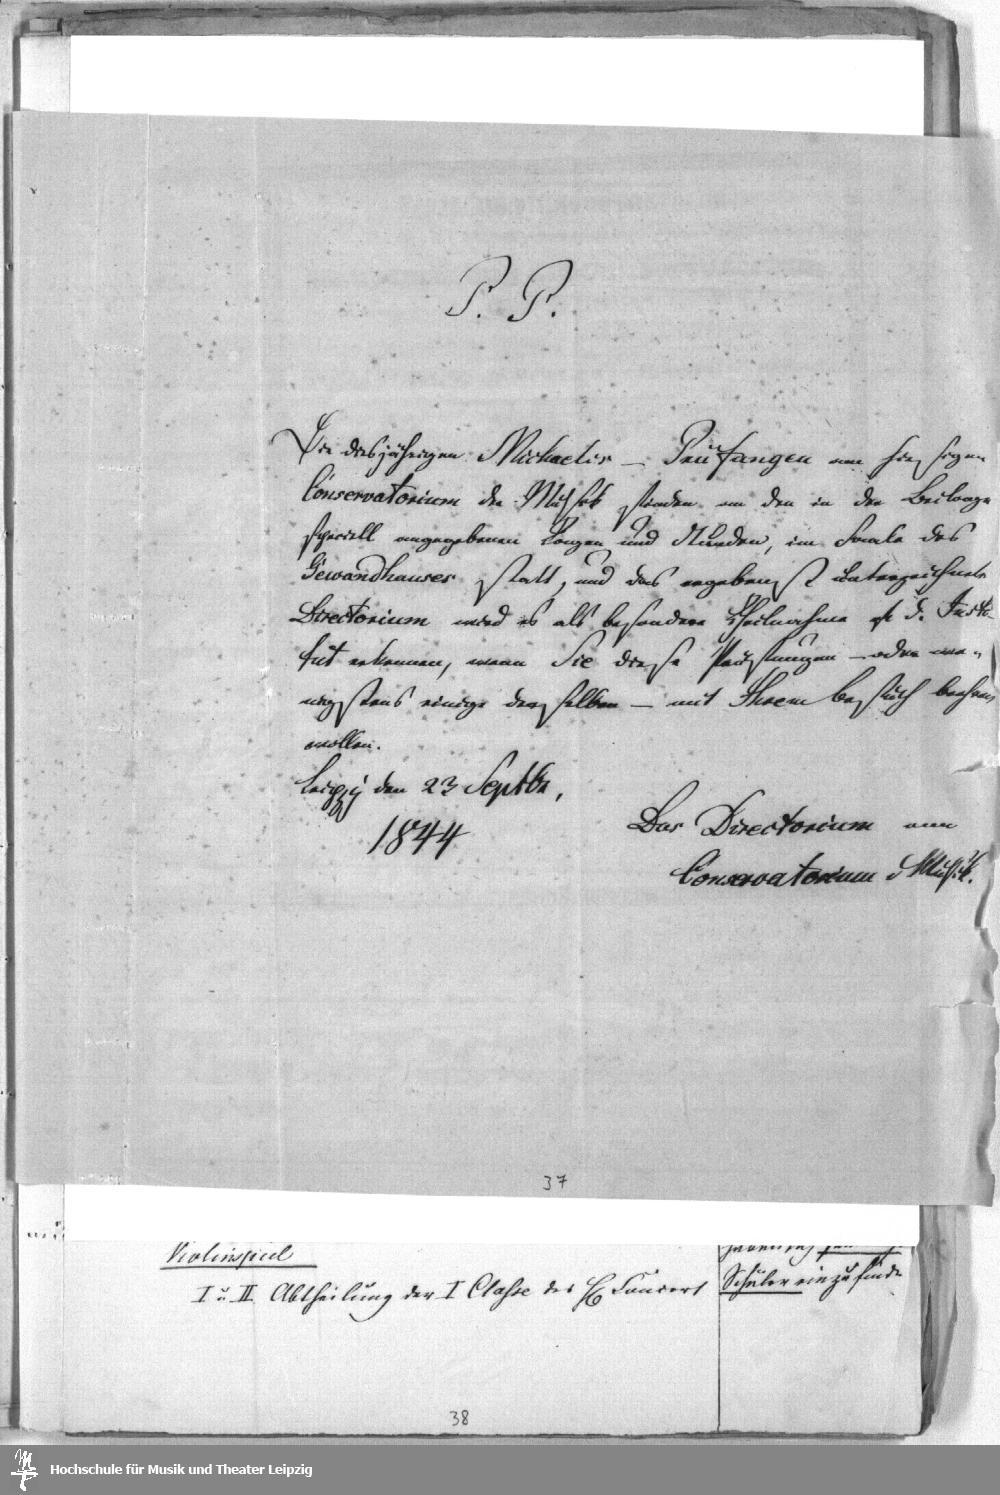 P. P.
Die diesjährigen Michaelis – Prüfungen am hiesigen
Conservatorium der Musik finden an den in der Beilage
speciell angegebenen Tagen und Stunden, im Saale des
Gewandhauses statt, und das ergebenst unterzeichnete
Directorium wird es als besondere Theilnahme f. d. Insti-
tut erkennen, wenn Sie diese Prüfungen – oder we-
nigstens einige derselben – mit Ihrem Besuch beehren
wollen.
Leipzig den 23 Septbr,
1844
Das Directorium am
Conservatorium d Musik.
37
Violinspiel
I u. II Abtheilung der I Classe des H Concert
Schüler einzufinde
38
Hochschule für Musik und Theater Leipzig